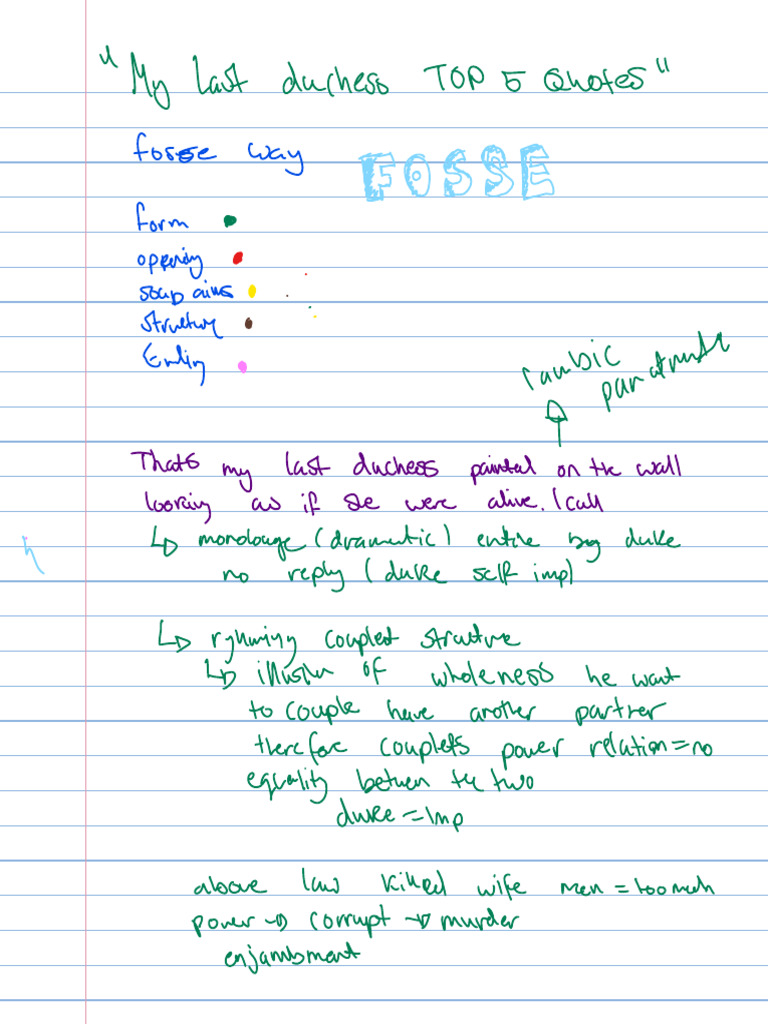 "My last duchess TOP 5 Quotes"
fosse way
FOSSE
form
opening
soup aims
structure
Ending
iambic
That's my last duchess painted on the wall
looking as if she were alive. I call
↳ monolouge (dramatic) entire by duke
no reply (duke self imp)
↳ ryhming couplet structure
↳ illusion of wholeness he want
to couple have another partner
therefore couplets power relation = no
equality between the two
duke = Imp
above law killed wife men = too much
power → corrupt → murder
enjambment